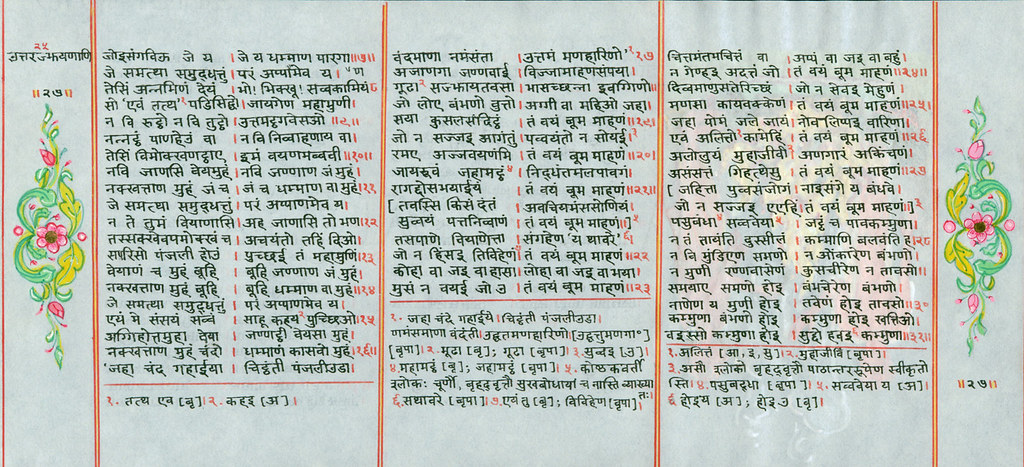 २५
उत्तरज्झयणाणि
॥२७॥
जोइसंगविऊ जे य । जे य धम्माण पारगा॥७॥
जे समत्था समुद्धत्तुं । परं अप्पाणमेव य ।
तेसिं अन्नमिणं देयं । भो! भिक्खू! सव्वकामियं॥८
सो 'एवं तत्थ'१ पडिसिद्धो । जायगेण महामुणी।
न वि रुट्ठो न वि तुट्ठो । उत्तमट्ठगवेसओ ॥९॥
नन्नट्ठं पाणहेउं वा । न वि निव्वाहणाय वा।
तेसिं विमोक्खणट्ठाए । इमं वयणमब्बवी॥१०॥
नवि जाणसि वेयमुहं । नवि जण्णाण जं मुहं।
नक्खत्ताण मुहं जं च । जं च धम्माण वा मुहं॥११
जे समत्था समुद्धत्तुं । परं अप्पाणमेव य।
न ते तुमं वियाणासि । अह जाणासि तो भण॥१२
तस्सक्खेवपमोक्खं च । अचयंतो तहिं दिओ।
सपरिसो पंजली होउं । पुच्छई तं महामुणिं॥१३
वेयाणं च मुहं बूहि । बूहि जण्णाण जं मुहं।
नक्खत्ताण मुहं बूहि । बूहि धम्माण वा मुहं॥१४
जे समत्था समुद्धत्तुं । परं अप्पाणमेव य ।
एयं मे संसयं सव्वं । साहू कहय२ पुच्छिओ॥१५
अग्गिहोत्तमुहा वेया । जण्णट्ठी वेयसा मुहं।
नक्खत्ताण मुहं चंदो । धम्माणं कासवो मुहं॥१६॥
'जहा चंदं गहाईया । चिट्ठंती पंजलीउडा।
१. तत्थ एव [बृ]। २. कहइ [अ]।
वंदमाणा नमंसंता । उत्तमं मणहारिणो'१॥१७
अजाणगा जण्णवाई । विज्जामाहणसंपया।
गूढा२ सज्झायतवसा । भासच्छन्ना इवग्गिणो॥
जो लोए बंभणो वुत्तो । अग्गी वा महिओ जहा।
सया कुसलसंदिट्ठं । तं वयं बूम माहणं॥१९॥
जो न सज्जइ आगंतुं । पव्वयंतो न सोयई।३
रमए अज्जवयणंमि । तं वयं बूम माहणं॥२०॥
जायरूवं जहामट्ठं४ । निद्धंतमलपावगं।
रागद्दोसभयाईयं । तं वयं बूम माहणं॥२१॥
[तवस्सियं किसं दंतं । अवचियमंससोणियं।
सुव्वयं पत्तनिव्वाणं । तं वयं बूम माहणं॥]५
तसपाणे वियाणेत्ता । संगहेण 'य थावरे'६।
जो न हिंसइ तिविहेणं७ । तं वयं बूम माहणं॥२२
कोहा वा जइ वा हासा । लोहा वा जइ वा भया।
मुसं न वयई जो उ । तं वयं बूम माहणं॥२३
१. जहा चंदे गहाईये । चिट्ठंती पंजलीउडा।
णमंसमाणा वंदंती। उद्धत्तमणहारिणो[उद्धत्तुमणगा०]
[बृपा]। २. मूढा [बृ]; गूढा [बृपा]। ३. सुच्चइ [उ]।
४. महामट्ठं [बृ]; जहामट्ठं [बृपा]। ५. कोष्ठकवर्ती
श्लोकः चूर्णौ, बृहद्वृत्तौ सुखबोधायां च नास्ति व्याख्यातः।
६. सथावरे [बृपा]। ७. एयं तु [बृ]; तिविहेण [बृपा]।
चित्तमंतमचित्तं वा । अप्पं वा जइ वा बहुं।
न गेण्हइ अदत्तं जो । तं वयं बूम माहणं॥२४॥
दिव्वमाणुसतेरिच्छं । जो न सेवइ मेहुणं।
मणसा कायवक्केणं । तं वयं बूम माहणं॥२५
जहा पोमं जले जायं । नोवलिप्पइ वारिणा।
एवं अलित्तो१ कामेहिं । तं वयं बूम माहणं॥२६
अलोलुयं मुहाजीवी२ । अणगारं अकिंचणं।
असंसत्तं गिहत्थेसु । तं वयं बूम माहणं॥२७
[जहित्ता पुव्वसंजोगं । नाइसंगे य बंधवे।
जो न सज्जइ एएहिं । तं वयं बूम माहणं॥]३
पसुबंधा४ सव्ववेया५ । जट्ठं च पावकम्मुणा।
न तं तायंति दुस्सीलं । कम्माणि बलवंति ह॥२८
न वि मुंडिएण समणो । न ओंकारेण बंभणो।
न मुणी रण्णवासेणं । कुसचीरेण न तावसो॥
समयाए समणो होइ । बंभचेरेण बंभणो।
नाणेण य मुणी होइ । तवेणं होइ तावसो॥३०
कम्मुणा बंभणो होइ । कम्मुणा होइ खत्तिओ।
वइस्सो कम्मुणा होइ । सुद्दो हवइ६ कम्मुणा॥३१॥
१. अलित्तं [आ, इ, सु]। २. मुहाजीविं [बृपा]।
३. असौ श्लोको बृहद्वृत्तौ पाठान्तररूपेण स्वीकृतोस्ति।
४. पसुबद्धा [बृपा]। ५. सव्ववेया य [अ]।
६. होइय [अ]; होइ उ [बृ]।
॥२७॥